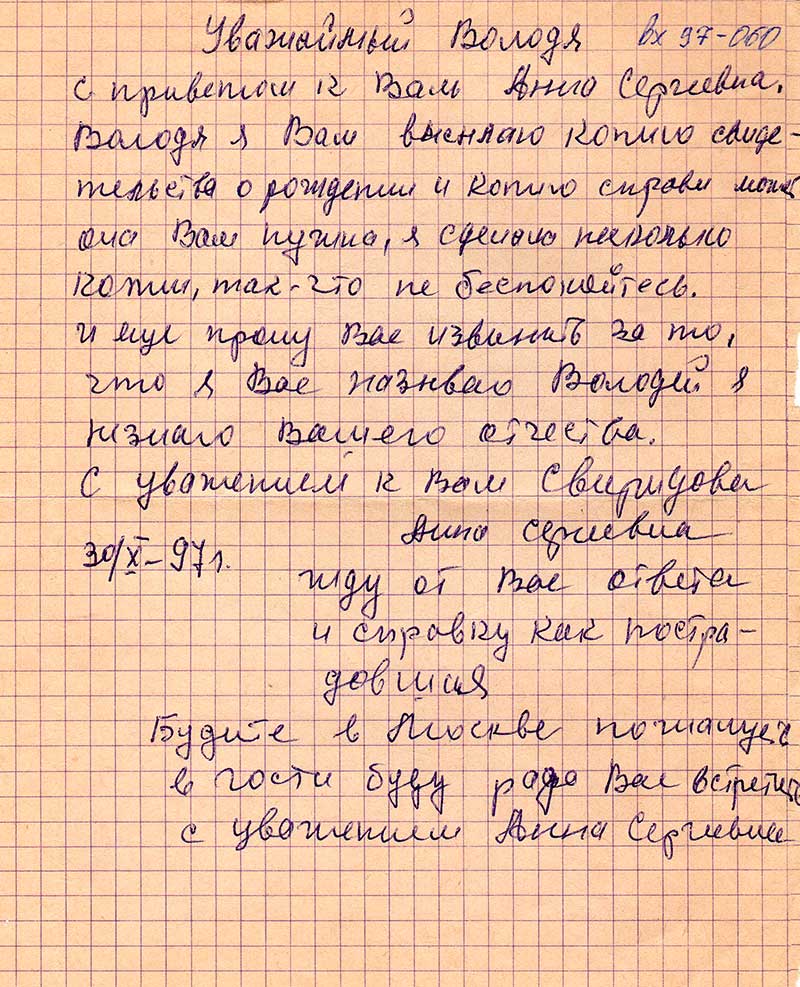 Уважаймый Володя вх 97-060
с приветом к Вам Анна Сергеевна.
Володя я Вам высылаю копию свиде-
тельства о рождении и копию справки может
она Вам нужна, я сделала несколько
копии, так-что не беспокойтесь.
и еще прошу Вас извинить за то,
что я Вас называю Володей я
незнаю Вашего отчества.
С уважением к Вам Свиридова
Анна Сергеевна
30/X-97г.
жду от Вас ответа
и справку как постра-
довшая
Будите в Москве пожалуста
в гости буду рада Вас встретить
с уважением Анна Сергеевна